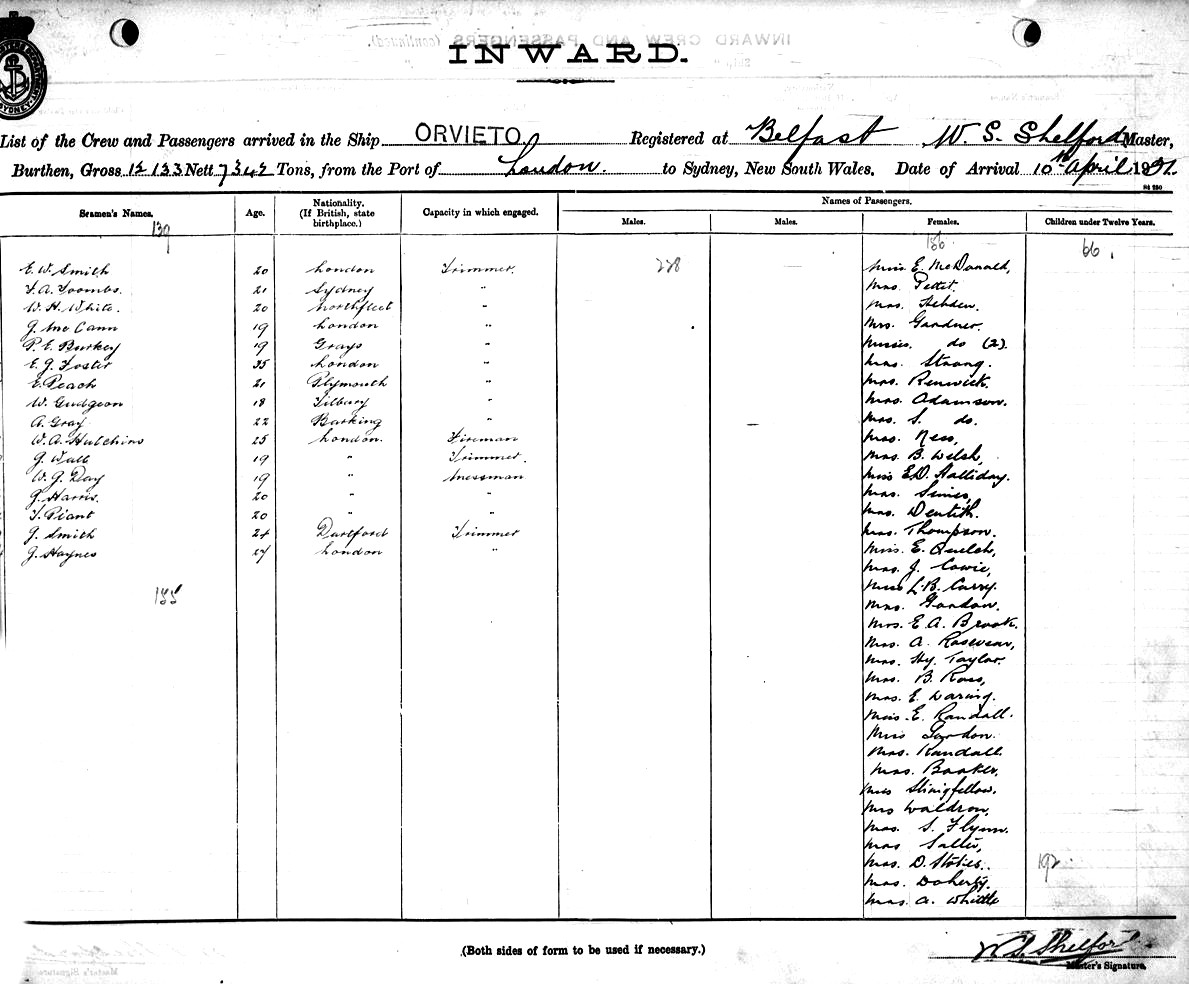 INWARD.
List of the Crew and Passengers arrived in the Ship ORVIETO Registered at Belfast W. S. Shelford Master,
Burthen, Gross 12133 Nett 7342 Tons, from the Port of London. to Sydney, New South Wales. Date of Arrival 10th April
Seamen's Names. Age. Nationality. (If British, state birthplace.) Capacity in which engaged. Names of Passengers.
Males. Males. Females. Children under Twelve Years.
139 228 156 66
E. W. Smith 20 London Trimmer. Miss E. McDonald,
F. A. Toombs. 21 Sydney " Mrs. Pettit.
W. H. White. 20 Northfleet " Mrs. Hebden.
J. McCann 19 London " Mrs. Gardner.
P. E. Burkey 19 Grays " Misses do (2).
E. J. Foster 35 London " Mrs. Strong.
E. Peach 21 Plymouth " Mrs. Renwick.
W. Gudgeon 18 Tilbury " Mrs. Adamson.
A. Gray 22 Barking " Mrs. S. do.
W. A. Hutchins 25 London. Fireman Mrs. Ness,
G. Wall 19 " Trimmer. Mrs. B. Welsh,
W. G. Day 19 " Messman Miss E.D. Halliday.
G. Harris. 20 " " Mrs.
20 " " Mrs. Dentith.
J. Smith 24 Dartford Trimmer Mrs. Thompson.
G. Haynes 27 London " Miss. E. Quelch,
Mrs. J. Cowie,
155 Miss L. B. Curry.
Mrs. Gordon.
Mrs. E. A. Brook.
Mrs. A. Rosevear,
Mrs. Hy. Taylor.
Mrs. B. Ross,
Mrs. E. Waring.
Miss. E. Randall.
Miss Gordon.
Mrs. Randall.
Mrs. Booker,
Miss Stringfellow.
Mrs Waldron,
Mrs. S. Flynn.
Mrs Salter,
Mrs. D. Stokes. 192
Mrs. Doherty.
Mrs. A. Whittle
(Both sides of form to be used if necessary.)
W. S. Shelford
Master's Signature.